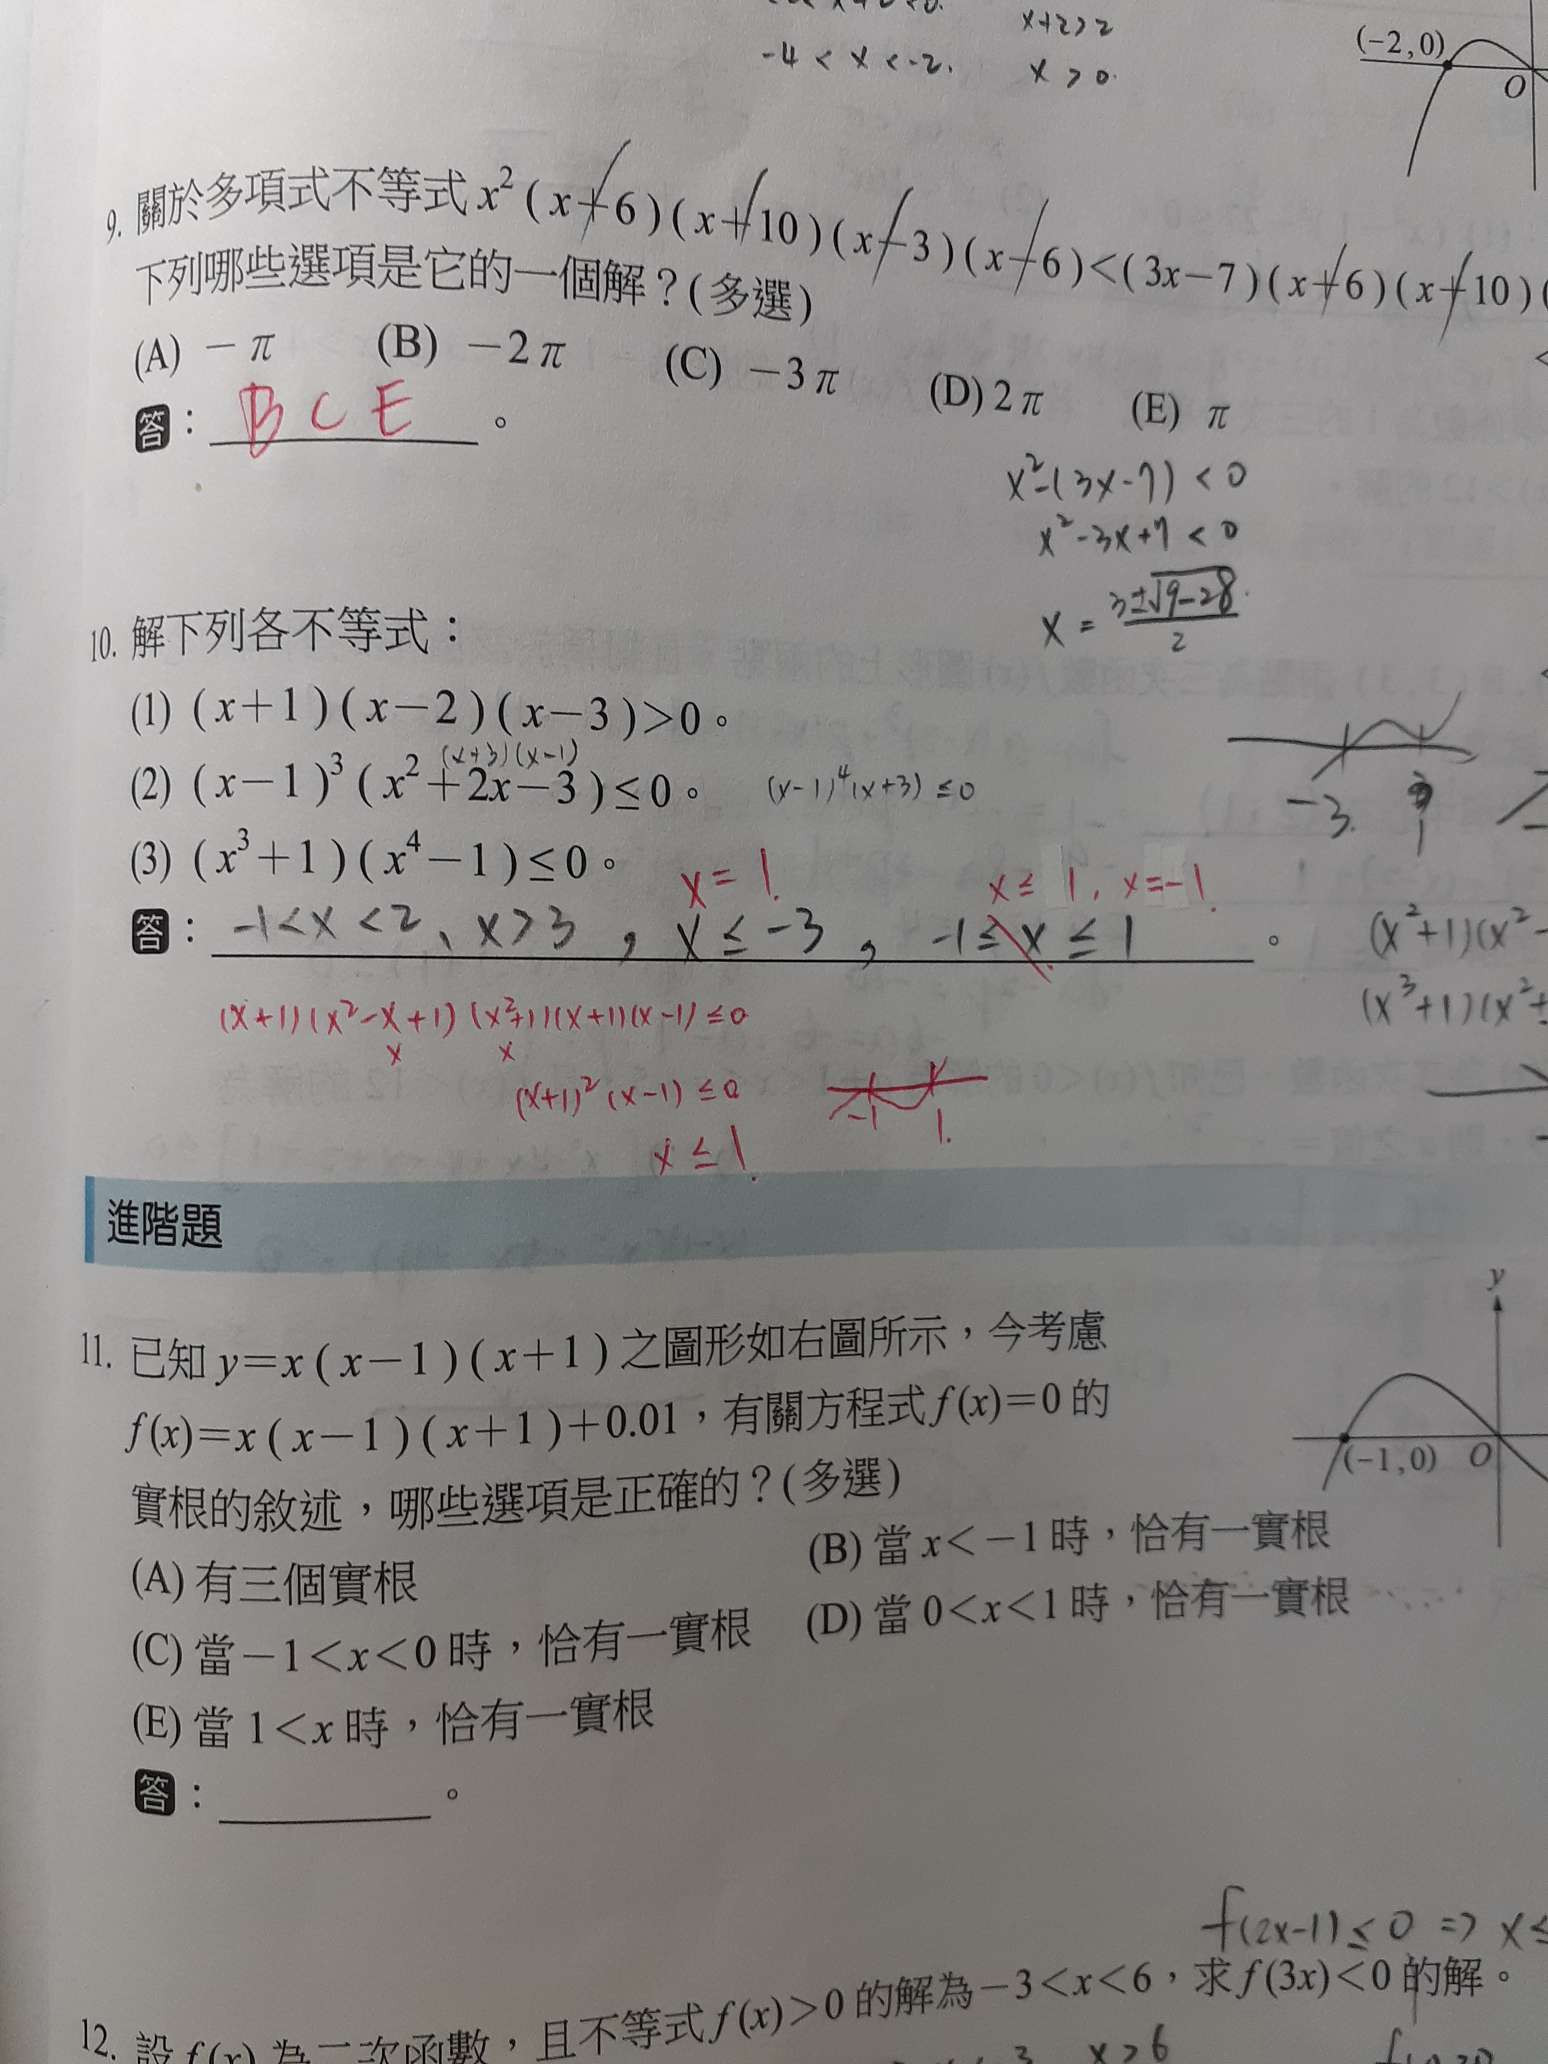 x+2>2
-4 < x < -2.
x > 0.
(-2,0)
O
9. 關於多項式不等式 x²(x+6)(x+10)(x-3)(x-6)<(3x-7)(x+6)(x+10)(
下列哪些選項是它的一個解？(多選)
(A) -π (B) -2π (C) -3π (D) 2π (E) π
答： B C E 。
x²-(3x-7) < 0
x²-3x+7 < 0
x = (3±√(9-28))/2
10. 解下列各不等式：
(1) (x+1)(x-2)(x-3)>0。
(x+3)(x-1)
(2) (x-1)³(x²+2x-3)≤0。 (x-1)⁴(x+3) ≤0
-3. 1
(3) (x³+1)(x⁴-1)≤0。
x = 1. x ≤ 1, x=-1.
答： -1<x<2、x>3, x ≤ -3, -1≤x≤1 。
(x²+1)(x²-
(x³+1)(x²+
(x+1)(x²-x+1)(x²+1)(x+1)(x-1) ≤0
x x
(x+1)²(x-1) ≤0
-1 1.
x ≤ 1.
進階題
11. 已知 y=x(x-1)(x+1)之圖形如右圖所示，今考慮
f(x)=x(x-1)(x+1)+0.01，有關方程式 f(x)=0 的
實根的敘述，哪些選項是正確的？(多選)
y
(-1,0) O
(A) 有三個實根 (B) 當 x<-1 時，恰有一實根
(C) 當 -1<x<0 時，恰有一實根 (D) 當 0<x<1 時，恰有一實根
(E) 當 1<x 時，恰有一實根
答： 。
f(2x-1) ≤ 0 => x≤
12. 設 f(x) 為二次函數，且不等式 f(x)>0 的解為 -3<x<6，求 f(3x)<0 的解。
x>6